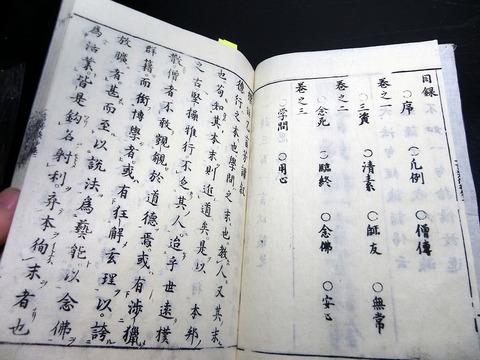 目録
○序 ○凡例 ○僧傳
巻之一
○三資 ○清素 ○師友 ○無常
巻之二
○念死 ○臨終 ○念佛 ○安心
巻之三
○学問 ○用心
德行之本也學問之末也教人又其末
也苟知其本末則近道矣是以 本邦
之古堅操雅行不乏其人迨乎世遠樸
散僧者不敢覬覦於道德焉或有涉獵
群籍而衒博學者或有狂解玄理以誇
放曠者甚而至以説法為藝能以念佛
為活業皆是釣名射利弃本徇末者也